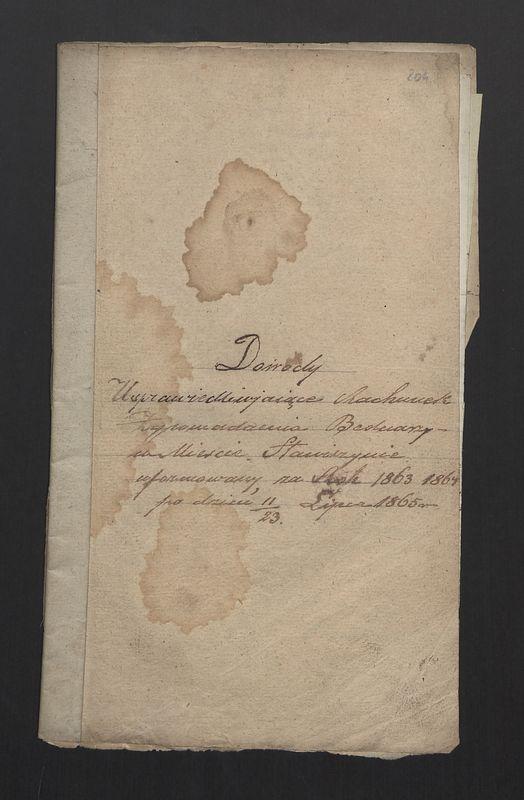 204
Dowody
Usprawiedliwiające Rachunek
Zgromadzenia Bednarzy
w Mieście Stawiszynie
uformowany za Rok 1863 1864
po dzień 11/23. Lipca 1865r